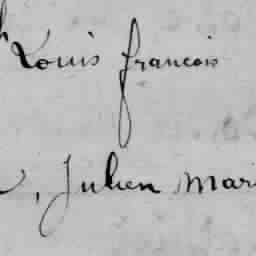 Louis francois
, Julien Mari